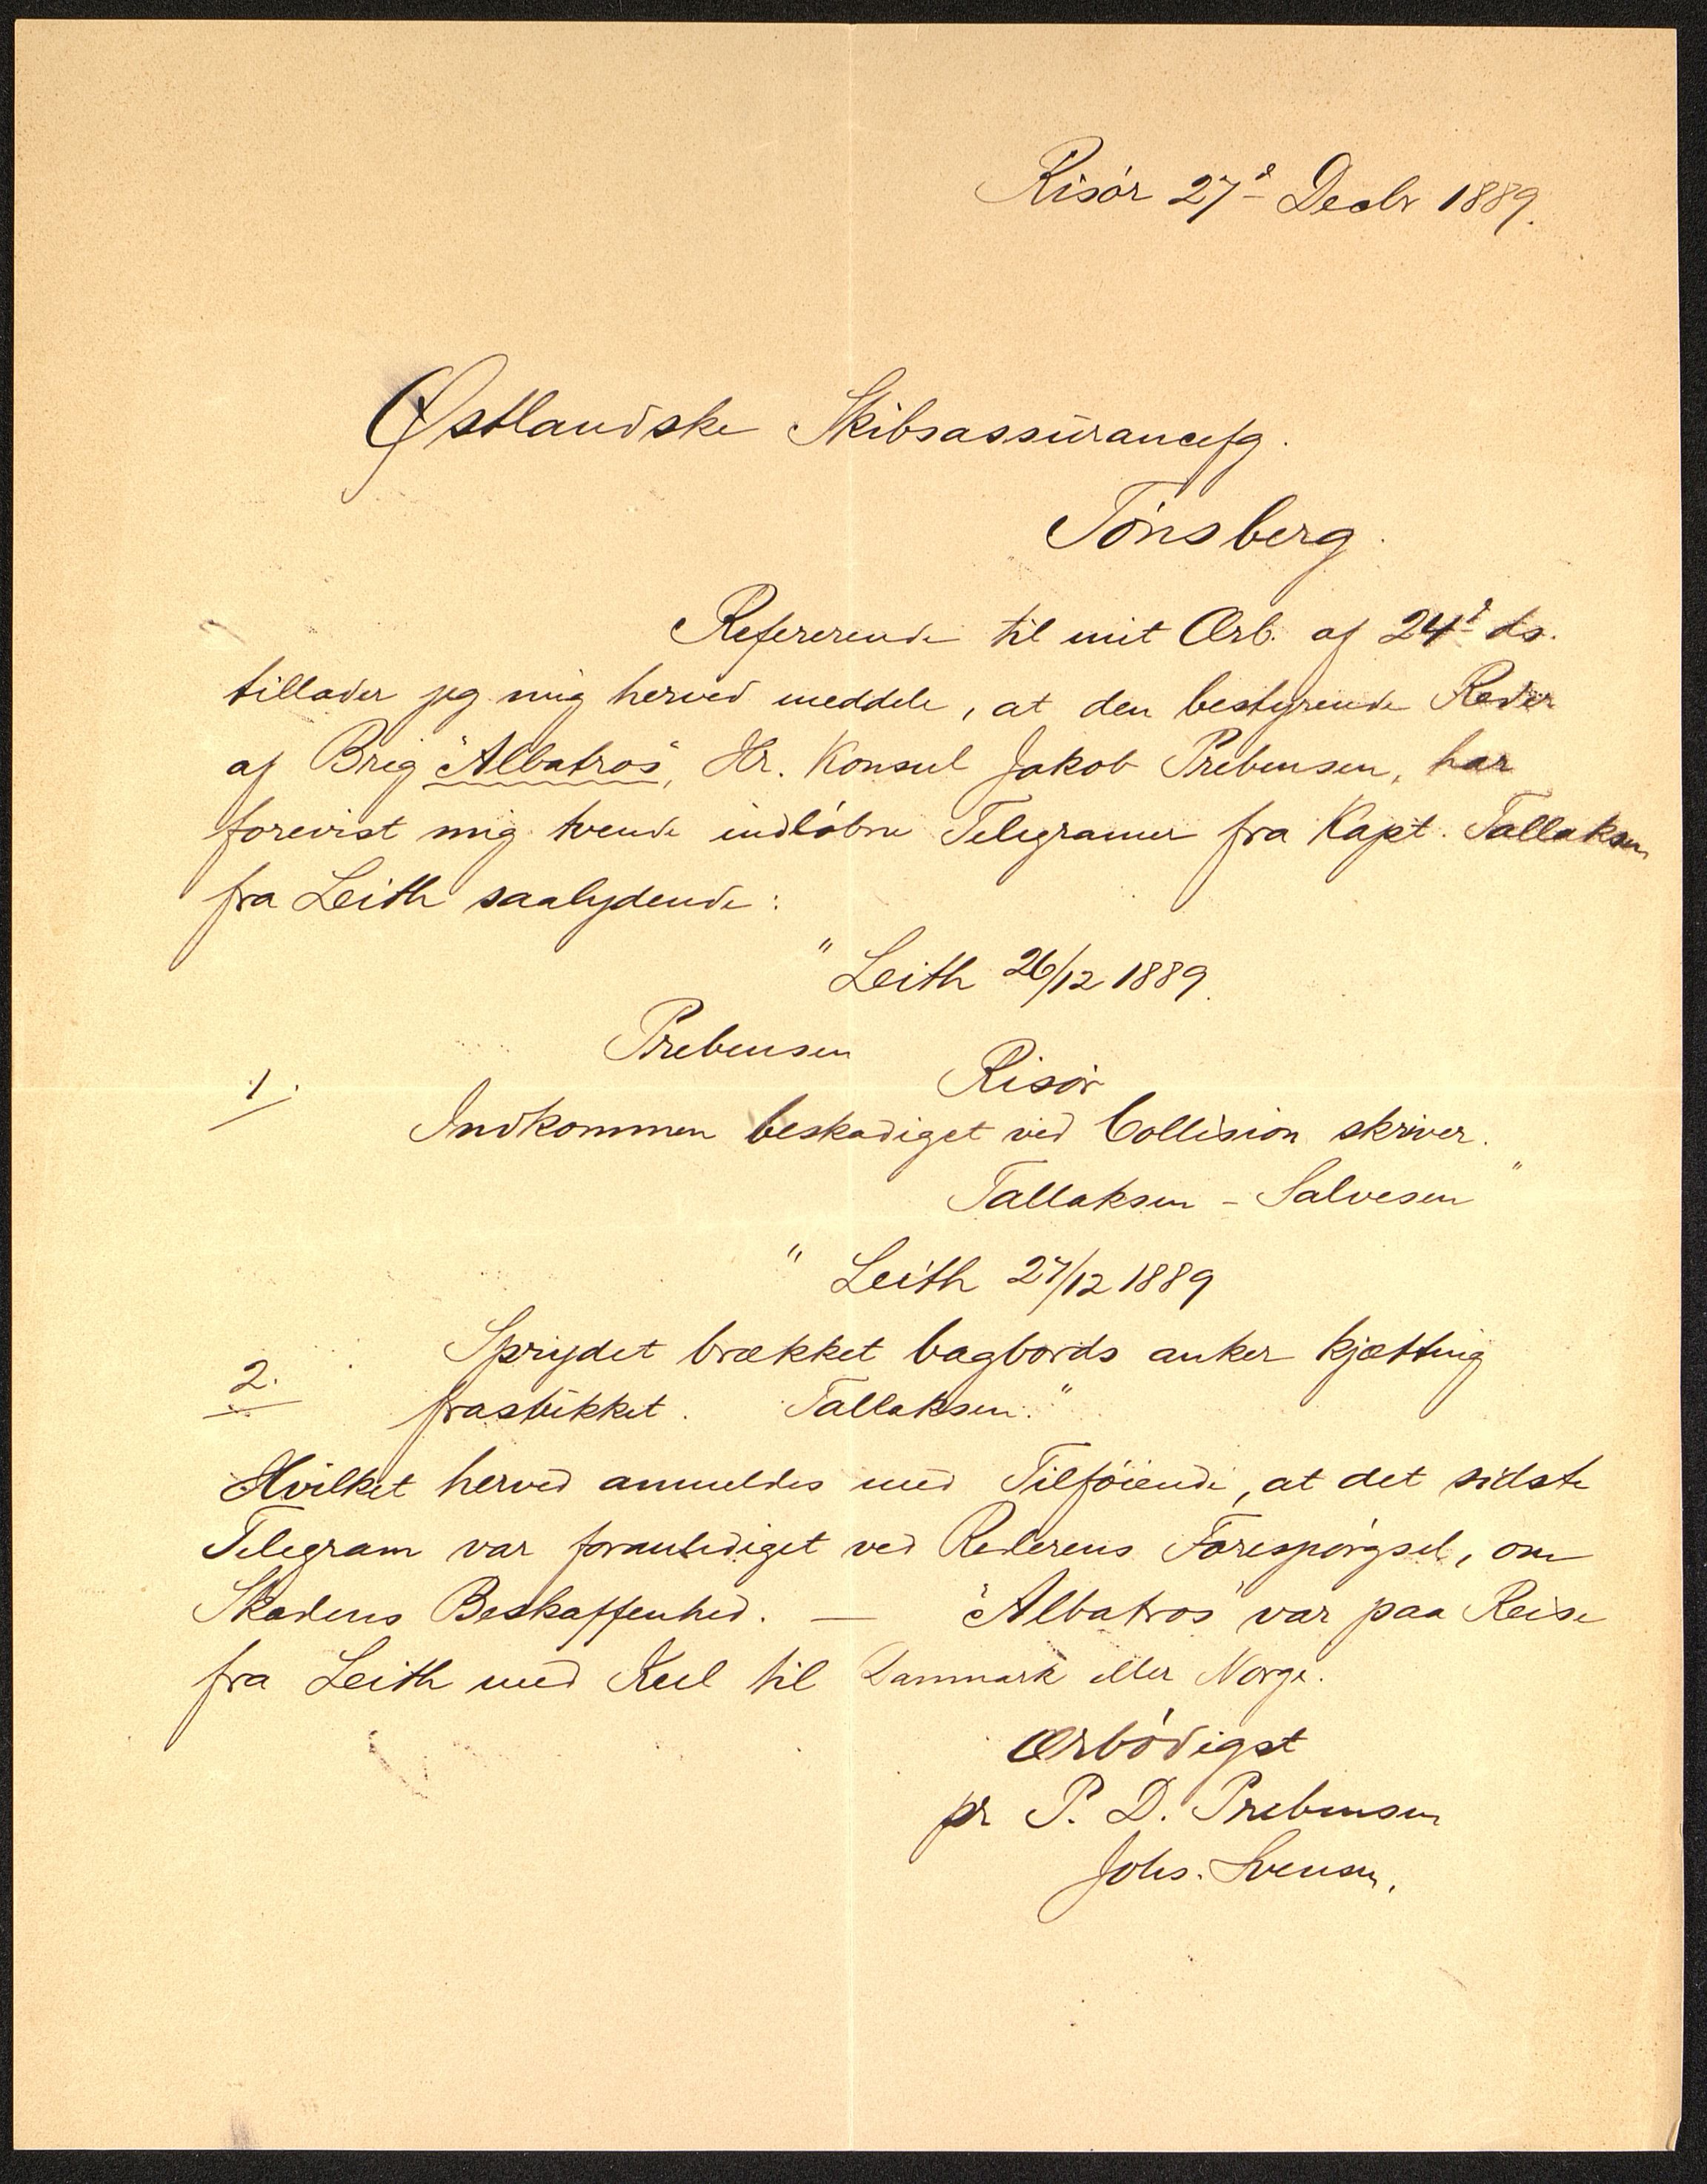 Risór 27ᵈ Decbr 1889.
Østlandske Skibsassurancefg.
Tónsberg.
Refererende til mit Ærb. af 24ᵈ ds.
tillader jeg mig herved meddele, at den bestyrende Reder
af Brig "Albatros", Hr. Konsul Jakob Prebensen, har
forevist mig tvende indlóbne Telegramer fra Kapt. Tallaksen
fra Leith saalydende:
" Leith 26/12 1889.
Prebensen
Risór
1.
Indkommen beskadiget ved Collision skriver.
Tallaksen - Salvesen "
" Leith 27/12 1889
2.
Sprydet brækket bagbords anker kjætting
frastikket. Tallaksen."
Hvilket herved anmeldes med Tilfóiende, at det sidste
Telegram var foranlediget ved Rederens Forespórgsel, om
Skadens Beskaffenhed. — "Albatros" var paa Reise
fra Leith med Kul til Danmark eller Norge.
Ærbódigst
pr P. D. Prebensen
Johs. Svensen.